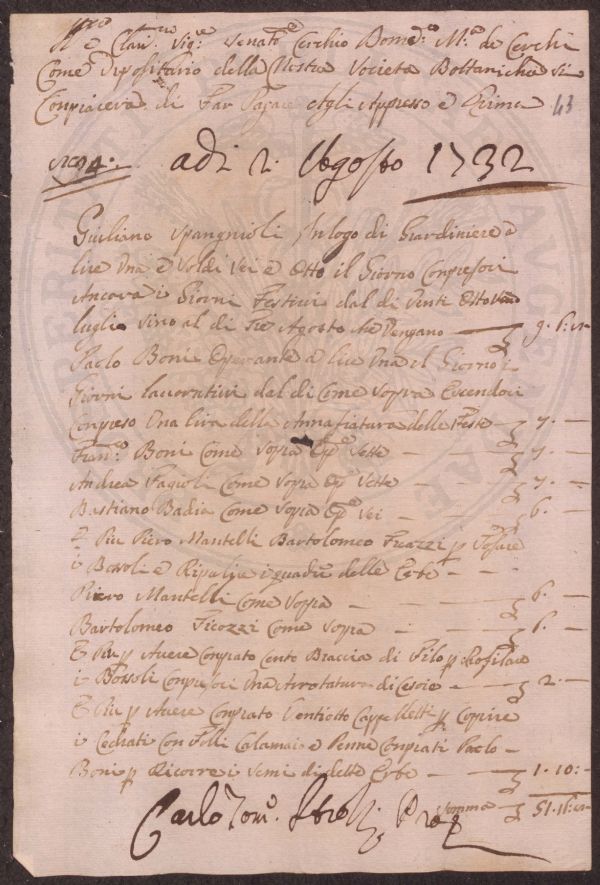 Ill.mo e Clari.mo Sig.re Senat.re Cerchio Bome.co M.a de Cerchi
Come Dipositario della Nostra Societa Bottanicha Si
Conpiacera di Far Pagare Agli Appresso e Prima 43
N.o 94. adi 2. Agosto 1732
Giuliano Spangnioli In logo di Giardiniere a
lire Una e Soldi Sei e Otto il Giorno Conpresoci
Ancora i Giorni Festivi dal di Venti Otto
luglio Sino al di Tre Agosto che Vengano — 9. 6:
Paolo Boni Operante a lire Una il Giorno i
Giorni lavorativi dal di Come Sopra Essendoci
Conpreso Una lira della Annafiatura delle Feste — 7. —
Fran.co Boni Come Sopra Op.e Sette — 7. —
Andrea Fagioli Come Sopra Op.e Sette — 7. —
Bastiano Badia Come Sopra Op.e Sei — 6. —
E Piu Piero Mantelli Bartolomeo p Tosare
i Bossoli e Ripulire i quadri delle Erbe —
Piero Mantelli Come Sopra — 6. —
Bartolomeo Ficozzi Come Sopra — 6. —
E Piu p Avere Conprato Cento Braccia di Filo p Rofilare
i Bossoli Conpresoci Una Arrotatura di Cesoie — 2. —
E Piu p Avere Conprato Ventiotto Cappelletti p Coprire
i Cedrati Con Folli Calamaio e Penne Conprati Paolo —
Boni p Ricorre i Semi di dette Erbe — 1. 10: —
Somma — 51. 16:
Carlo Tom.o